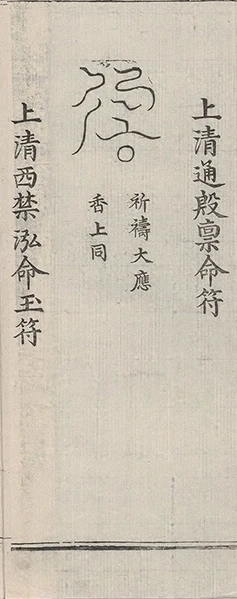 上清通殿禀命符
祈禱大應
香上同
上清西禁泓命玉符